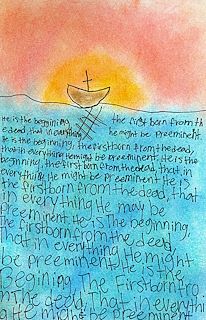 He is the beginning, the firstborn from th
e dead, that in everything he might be preeminent.
He is the beginning, the firstborn from the dead,
that in everything He might be preeminent. He is the
beginning, the firstborn from the dead, that in
everything He might be preeminent. He is
the firstborn from the dead, that
in everything He may be
preeminent. He is the beginning,
the firstborn from the dead,
that in everything He might
be preeminent, He might
be He is the
Begining The Firstborn fro
m the dead, That in everythi
g He might be preeminent